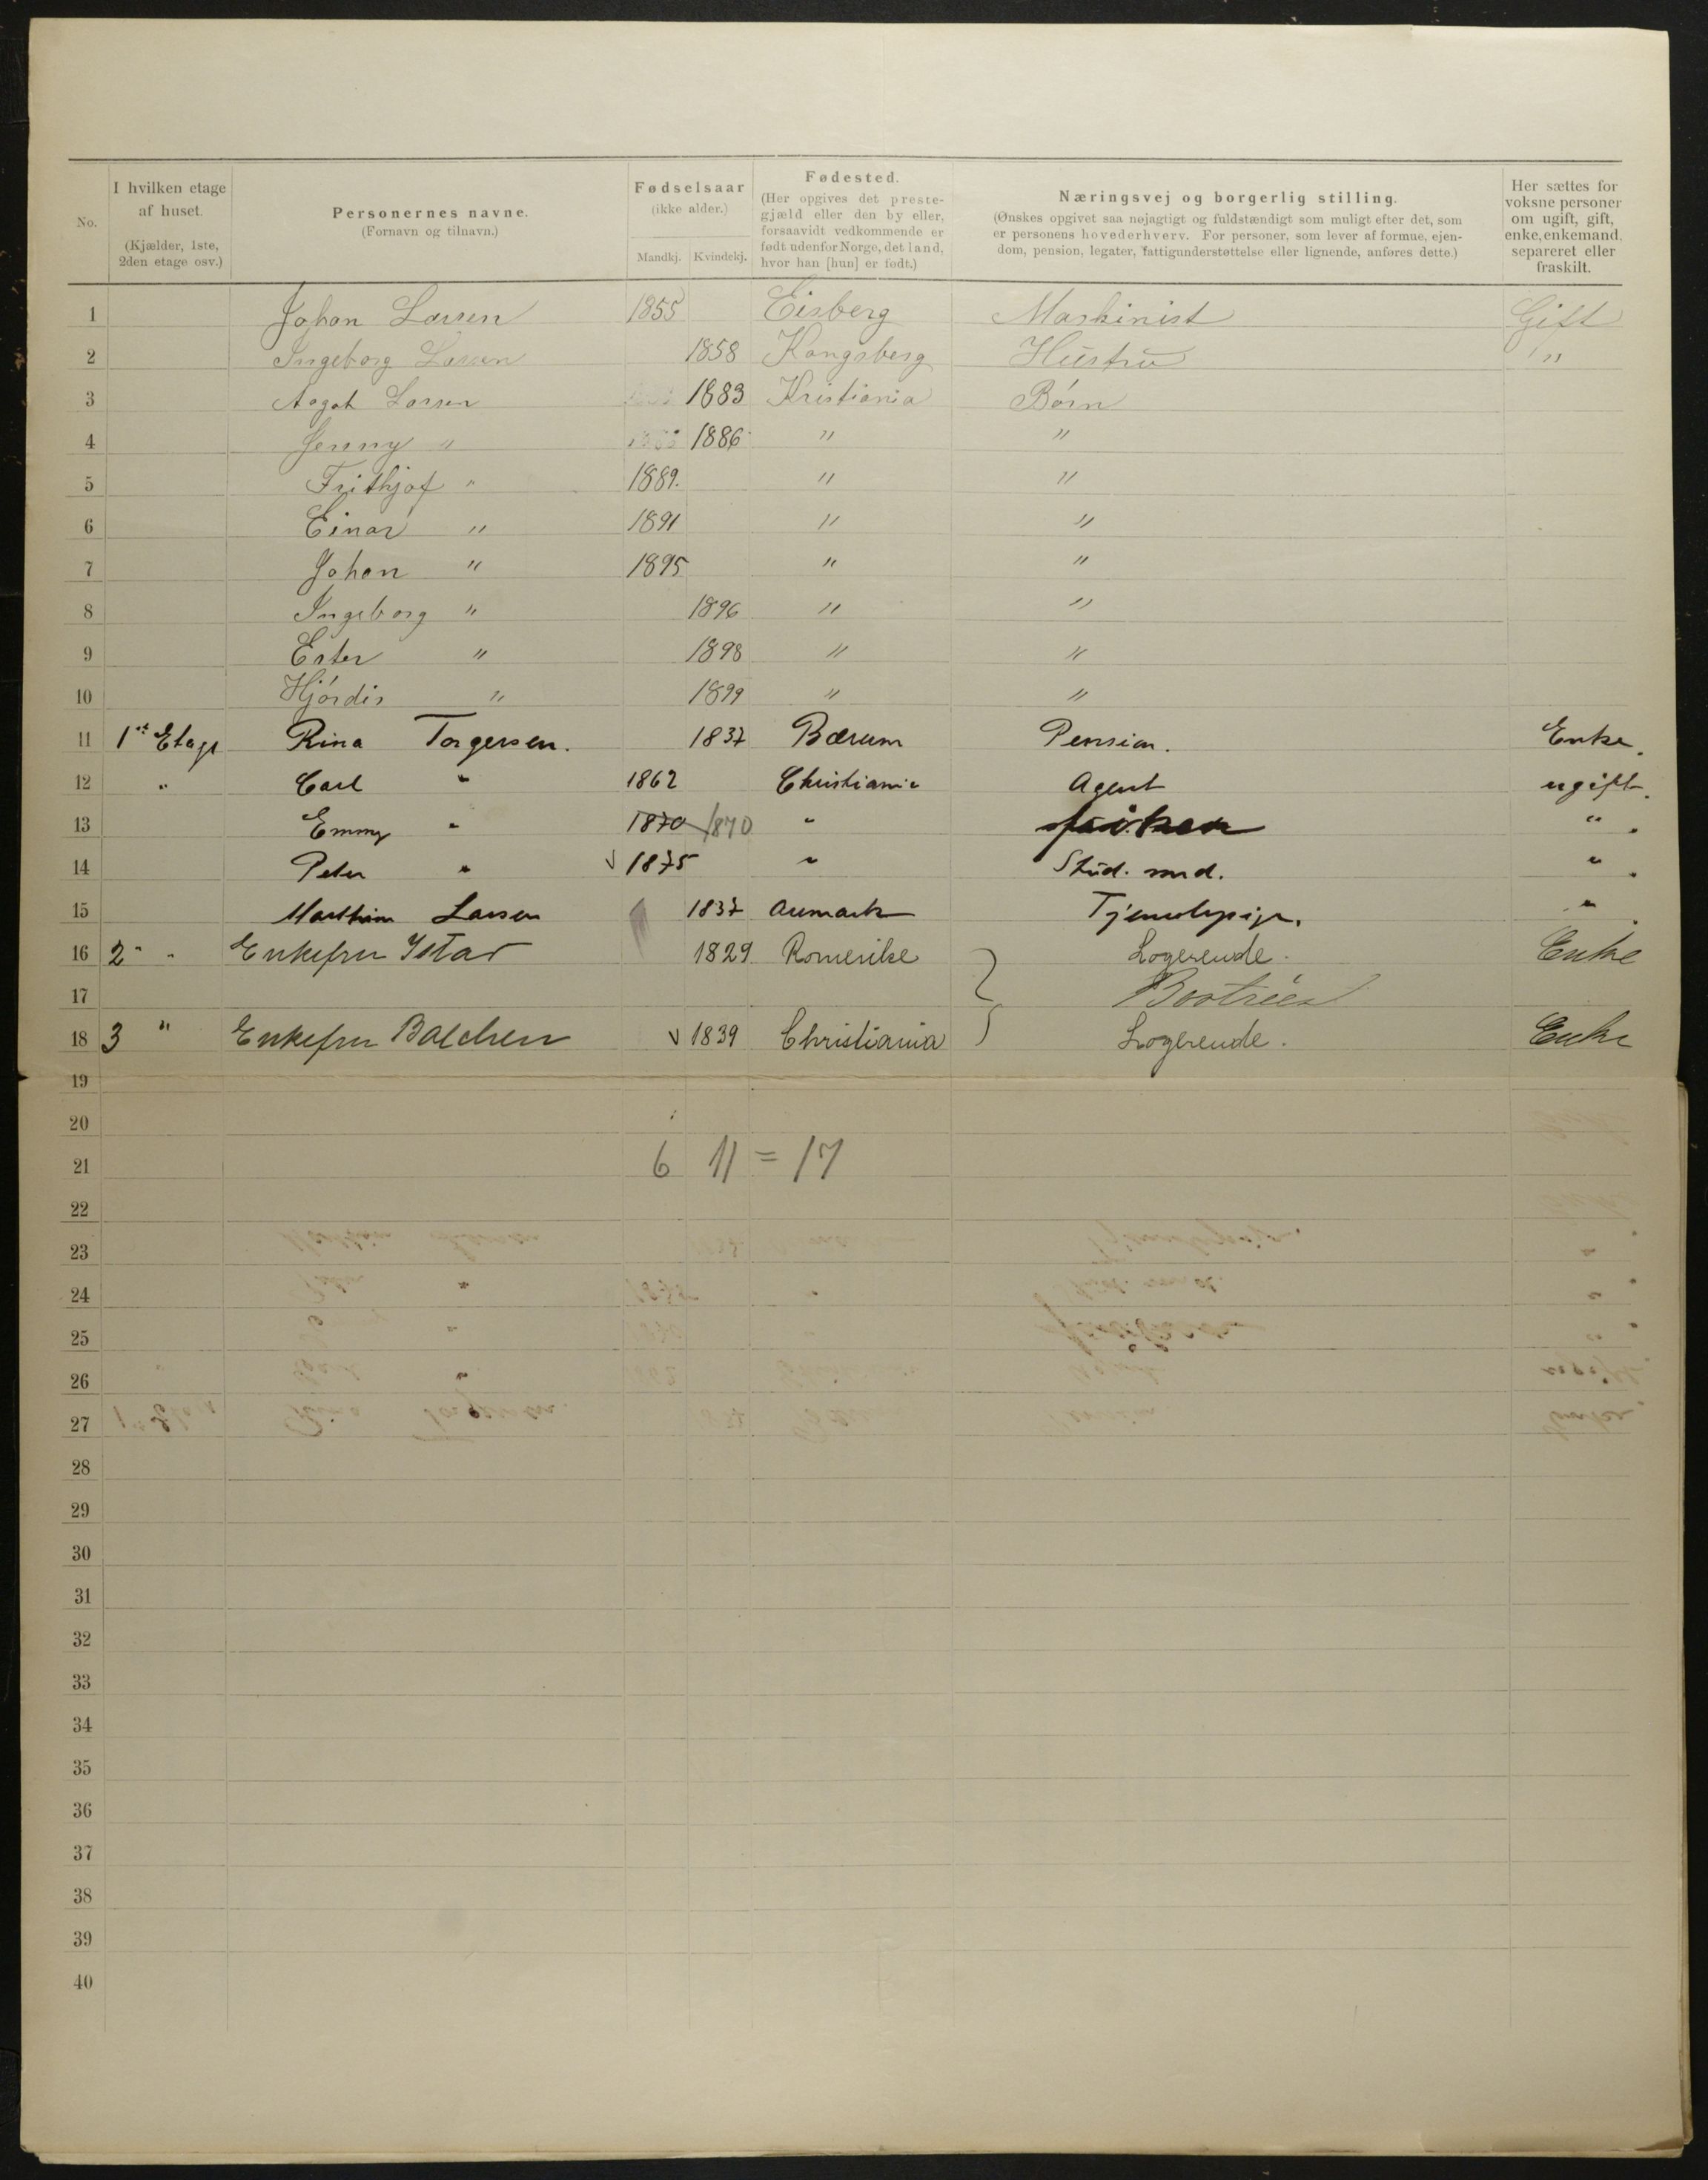 No.
I hvilken etage af huset.
(Kjælder, 1ste, 2den etage osv.)
Personernes navne.
(Fornavn og tilnavn.)
Fødselsaar
(ikke alder.)
Mandkj. Kvindekj.
Fødested.
(Her opgives det preste-
gjæld eller den by eller,
forsaavidt vedkommende er
født udenfor Norge, det land,
hvor han [hun] er født.)
Næringsvej og borgerlig stilling.
(Ønskes opgivet saa nøjagtigt og fuldstændigt som muligt efter det, som
er personens hovederhverv. For personer, som lever af formue, ejen-
dom, pension, legater, fattigunderstøttelse eller lignende, anføres dette.)
Her sættes for
voksne personer
om ugift, gift,
enke, enkemand,
separeret eller
fraskilt.
1 Johan Larsen 1855 Eisberg Maskinist Gift
2 Ingeborg Larsen 1858 Kongsberg Hustru "
3 Aagot Larsen 1883 Kristiania Børn
4 Jenny " 1886 " "
5 Frithjof " 1889. " "
6 Einar " 1891 " "
7 Johan " 1895 " "
8 Ingeborg " 1896 " "
9 Ester " 1898 " "
10 Hjørdis " 1899 " "
11 1st Etage Rina Torgersen. 1837 Bærum Pension. Enke.
12 " Carl " 1862 Christiania Agent ugift.
13 Emmy " 1870 1870 " " .
14 Peter " 1875 " Stud. med. " .
15 Larsen 1837 Aremark Tjenestepige. " .
16 2 " " Enkefru 1829 Romerike Logerende. Enke
17
18 3 " Enkefru Balchen 1839 Christiania Logerende. Enke
19
20
21 6 11 = 17
22
23
24
25
26
27
28
29
30
31
32
33
34
35
36
37
38
39
40